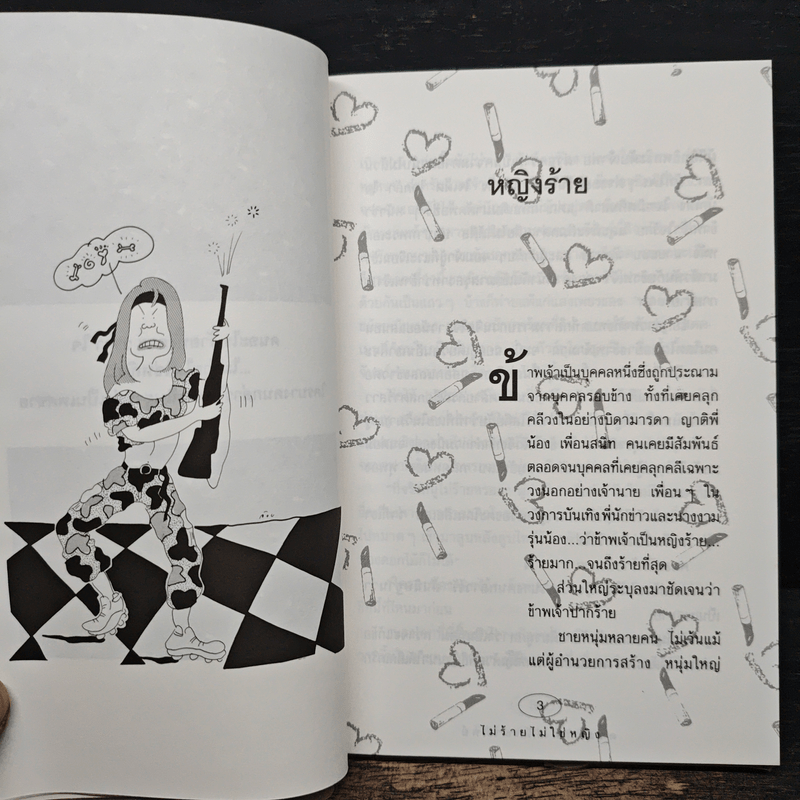 หญิงร้าย
ข้าพเจ้าเป็นบุคคลหนึ่งซึ่งถูกประณาม
จากบุคคลรอบข้าง ทั้งที่เคยคลุก
คลีวงในอย่างบิดามารดา ญาติพี่
น้อง เพื่อนสนิท คนเคยมีสัมพันธ์
ตลอดจนบุคคลที่เคยคลุกคลีเฉพาะ
วงนอกอย่างเจ้านาย เพื่อน ๆ ใน
วงการบันเทิง พี่นักข่าวและนางงาม
รุ่นน้อง...ว่าข้าพเจ้าเป็นหญิงร้าย...
ร้ายมาก จนถึงร้ายที่สุด
ส่วนใหญ่ระบุลงมาชัดเจนว่า
ข้าพเจ้าปากร้าย
ชายหนุ่มหลายคน ไม่เว้นแม้
แต่ผู้อำนวยการสร้าง หนุ่มใหญ่
3
ไม่ร้ายไม่ใช่หญิง